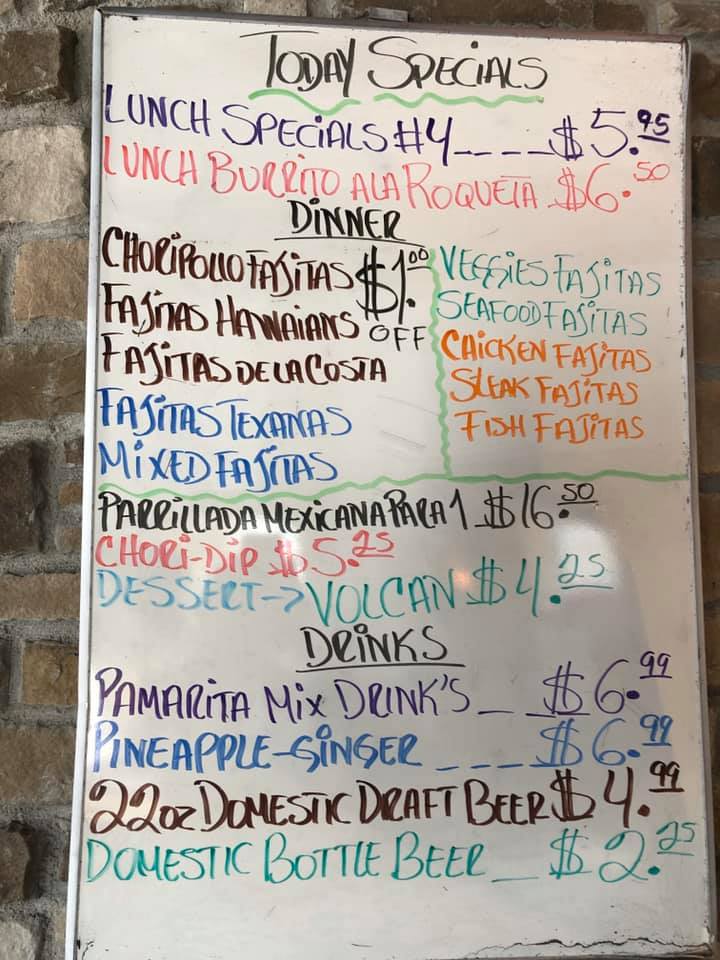 TODAY SPECIALS
LUNCH SPECIALS #4____$5.95
LUNCH BURRITO ALA ROQUETA $6.50
DINNER
CHORIPOLLO FAJITAS $1.00
FAJITAS HAWAIANS OFF
FAJITAS DE LA COSTA
FAJITAS TEXANAS
MIXED FAJITAS
VEGGIES FAJITAS
SEAFOOD FAJITAS
CHICKEN FAJITAS
STEAK FAJITAS
FISH FAJITAS
PARRILLADA MEXICANA PARA 1 $16.50
CHORI-DIP $5.25
DESSERT-> VOLCAN $4.25
DRINKS
PAMARITA MIX DRINK'S __ $6.99
PINEAPPLE-GINGER ___ $6.99
22oz DOMESTIC DRAFT BEER $4.99
DOMESTIC BOTTLE BEER _ $2.25